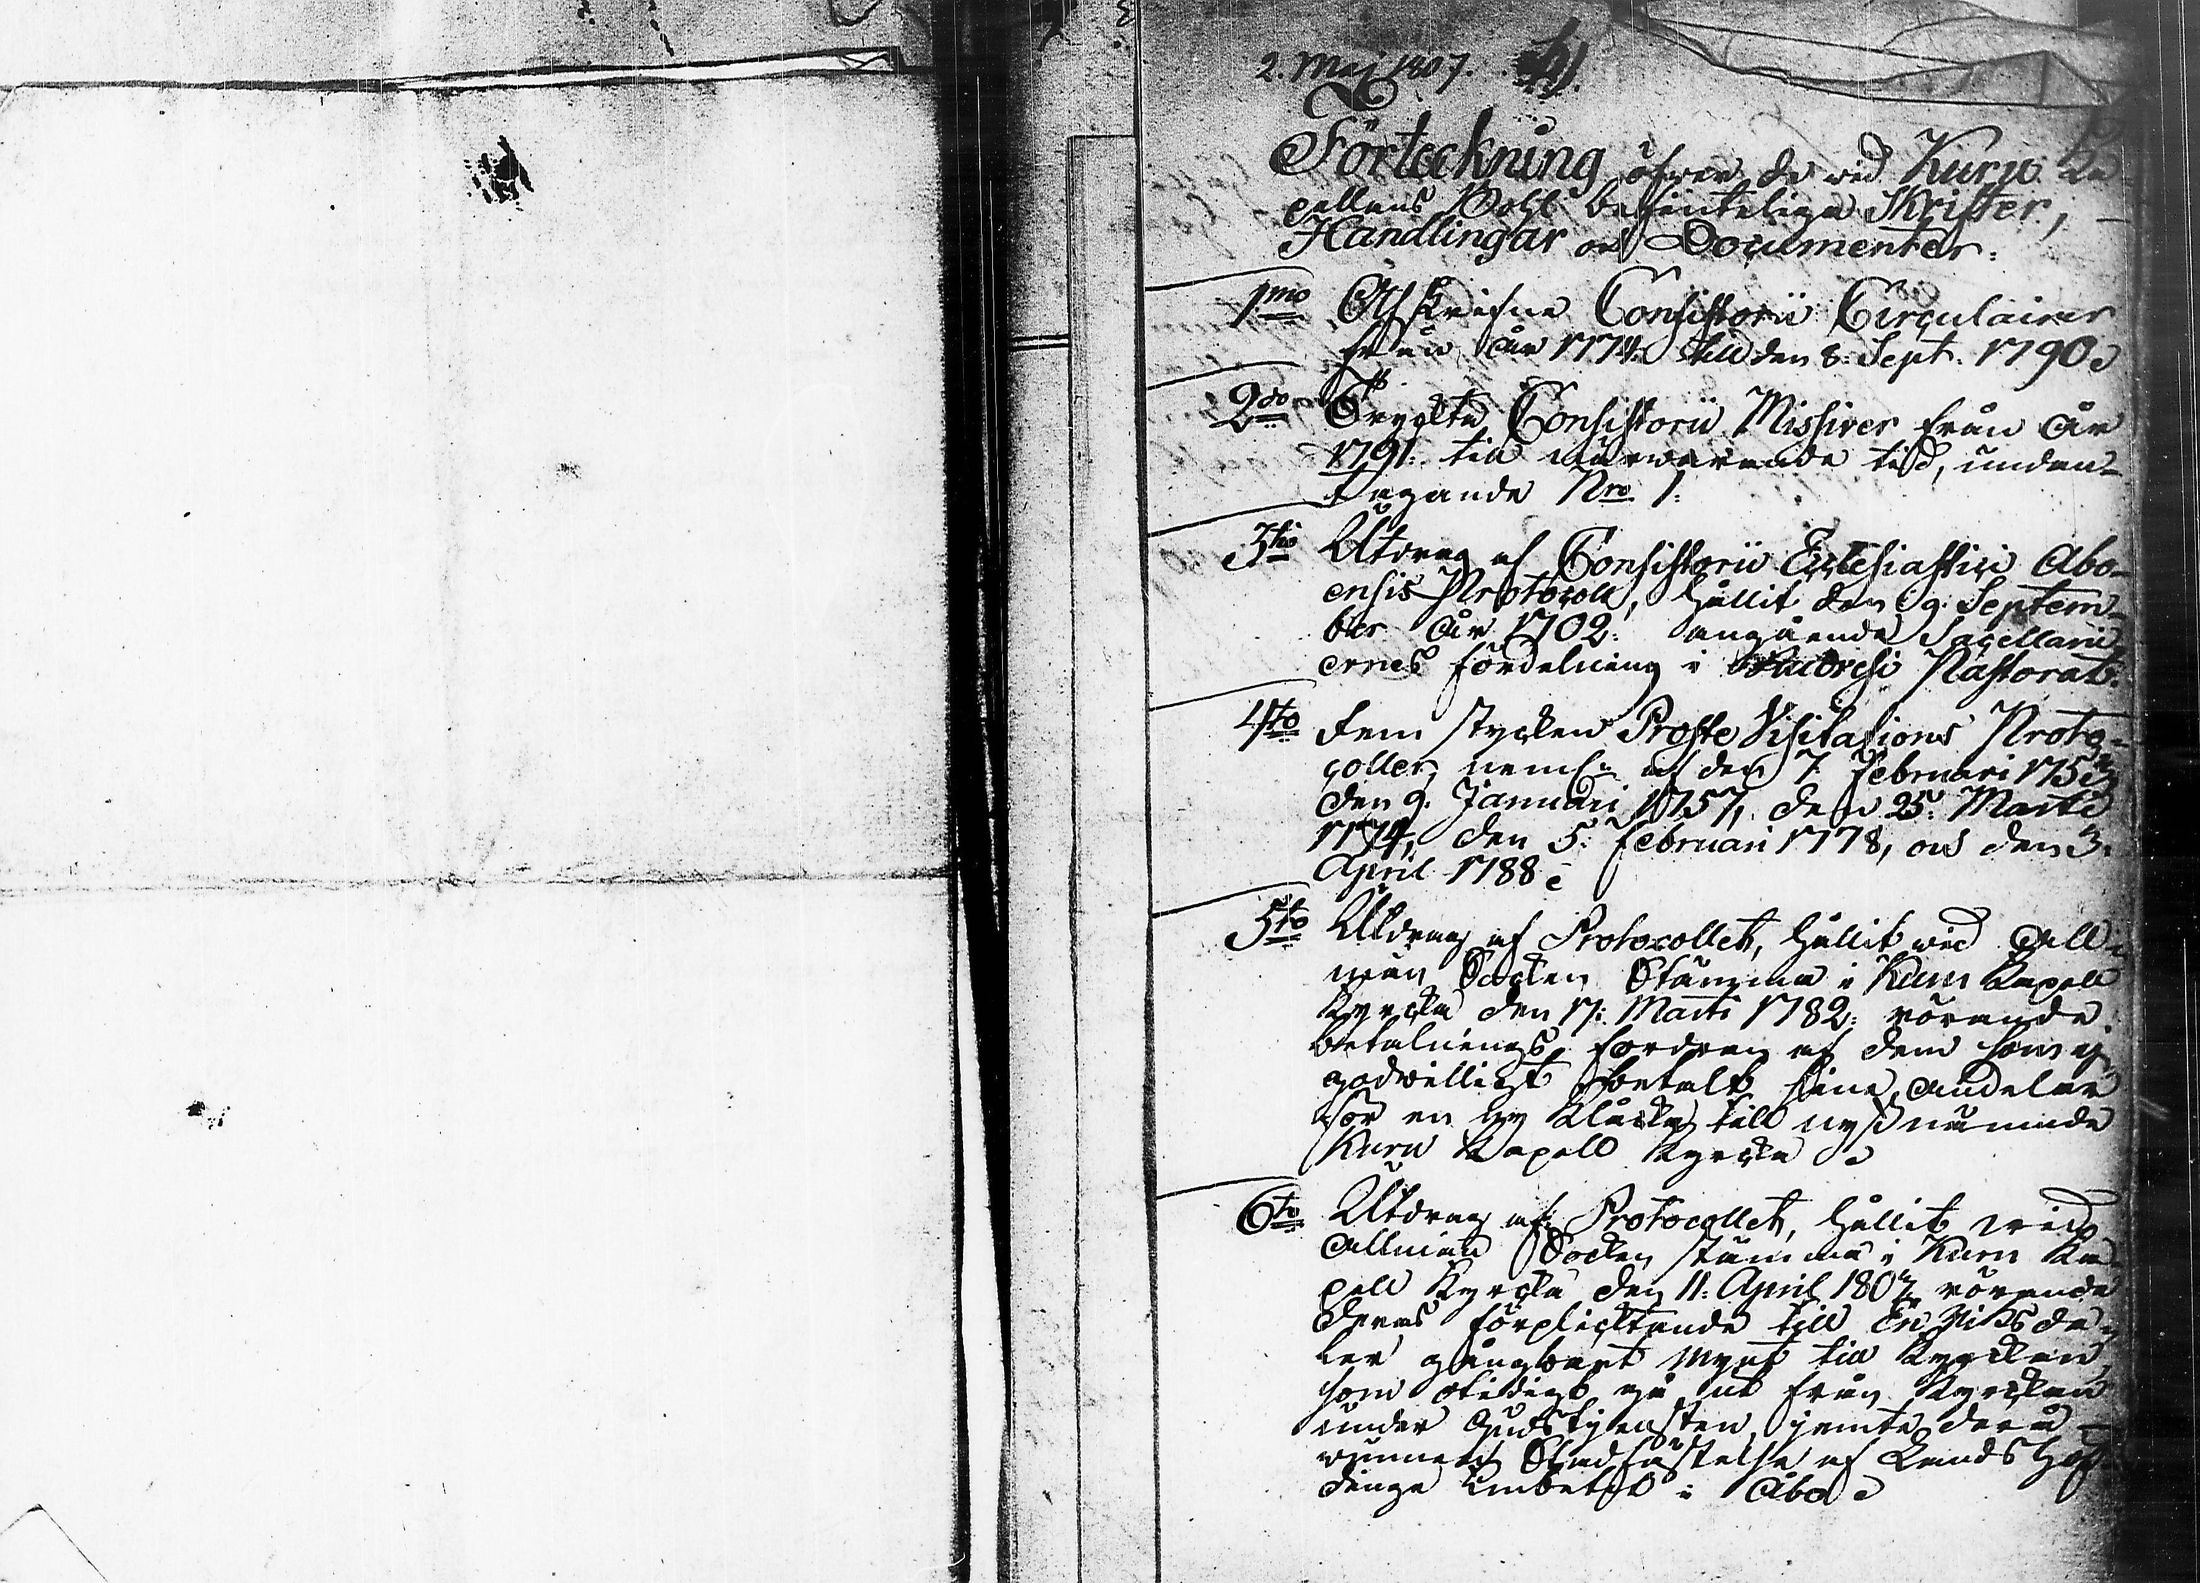 2. Maj 1807.
Förteckning öfwer de wid Kuru Ka
pellans Bohl befinteliga Skrifter,
Handlingar och Documenter.
1mo Afskrifne Consistorii Circulairer
från år 1774. till den 8. Sept. 1790.
2do Tryckta Consistorii Missiver från år
1791. till närwarande tid, undan-
tagande Nro 1.
3tio Utdrag af Consistorii Ecclesiastici Abo-
ensis Protocoll, hållit den 9. Septem-
ber år 1702. angående Sacellani
ernes fördelning i Pastorat.
4to Fem stycken Proste Visitations Proto-
coller, neml. af den 7. Februari
den 9. Januari 1757, den 25. Martii
1774, den 5. Februari 1778, och den 3.
April 1788.
5to Utdrag af Protocollet, hållit wid all-
män Socken Stämma i Kuru Kapell
Kyrcka den 17. Martii 1782. rörande
betalnings fordran af dem som ej
godwilligt betalt sine andelar
för en ny Klåcka till nyssnämnde
Kuru Kapell Kyrcka.
6to Utdrag af Protocollet, hållit wid
allmän Socken stämma i Kuru Ka-
pell Kyrcka den 11. April 1807, rörande
deras förplicktande till En Riksda-
ler gångbart mynt till Kyrckan,
som otidigt gå ut från Kyrckan
under Gudstjensten, jemte derå
wunnen Stadfästelse af Lands Höf-
dinge Embetet i Åbo.